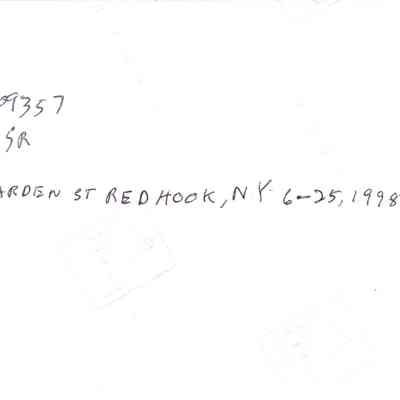 09357
SR
ARDEN ST RED HOOK, NY 6-25, 1998